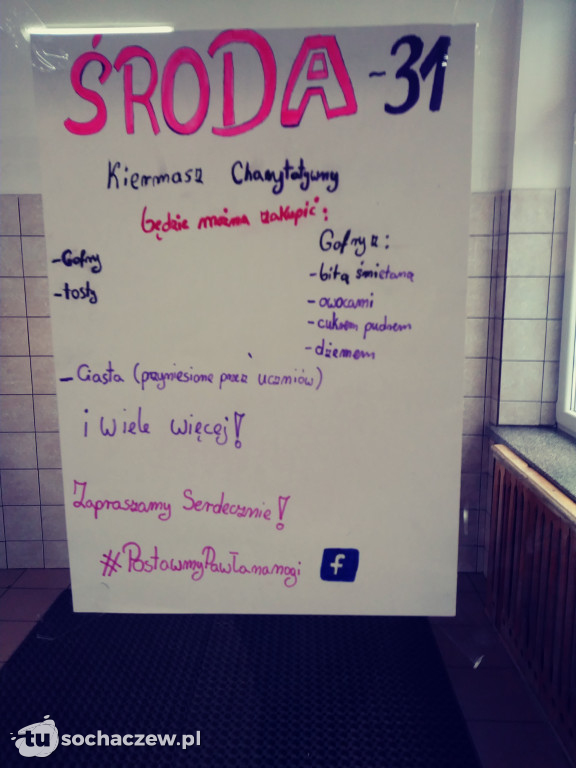 ŚRODA -31
Kiermasz Charytatywny
będzie można zakupić:
-Gofry
-tosty
Gofry z:
-bitą śmietaną
-owocami
-cukrem pudrem
-dżemem
-Ciasta (przyniesione przez uczniów)
i wiele więcej!
Zapraszamy Serdecznie!
#PostawmyPawłananogi f
tusochaczew.pl